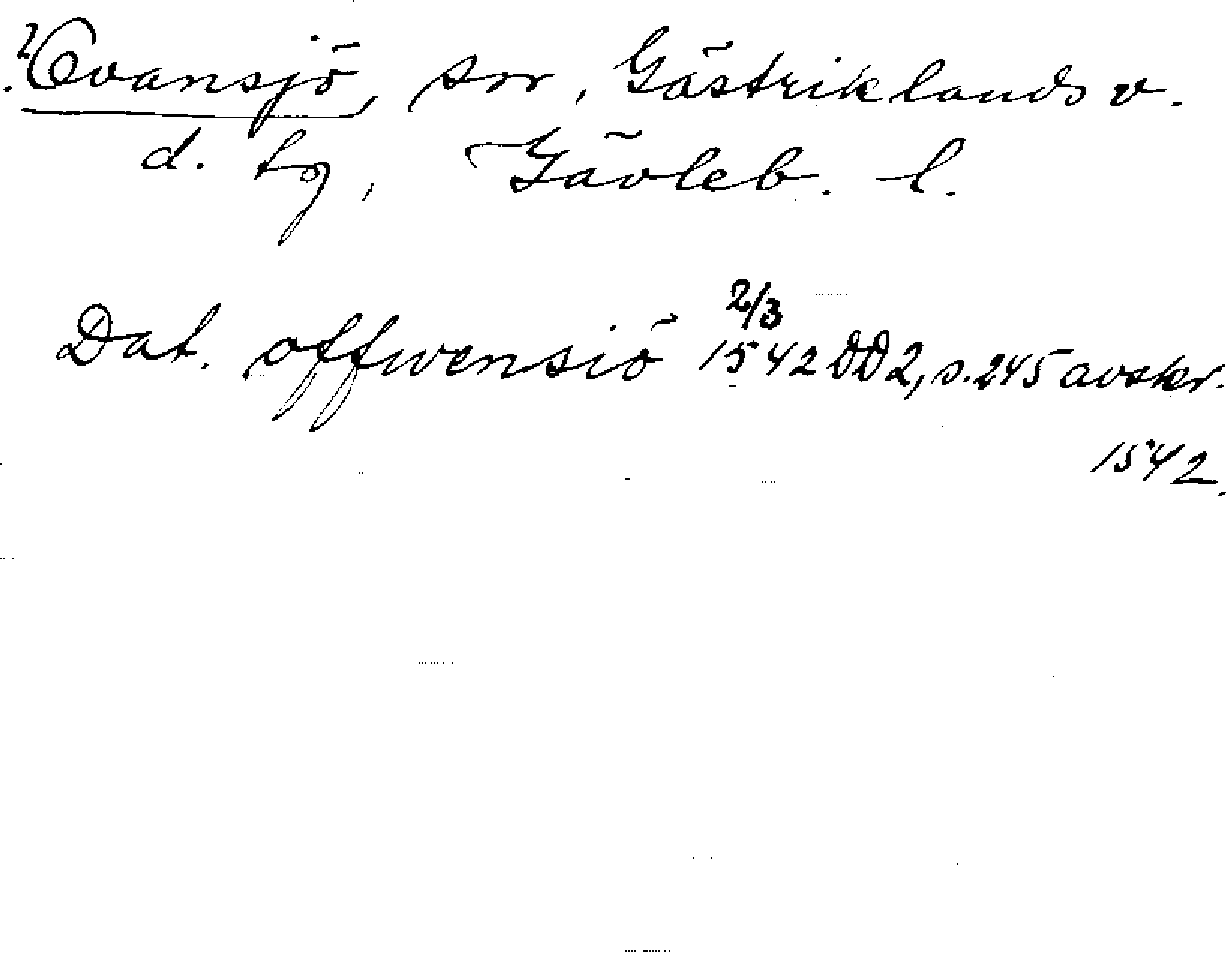 ?Ovansjö, sn, Gästriklands v.
d. tg, Gävleb. l.
Dat. offwensiö 2/3 1542 DD2, s. 245 avskr.
1542.